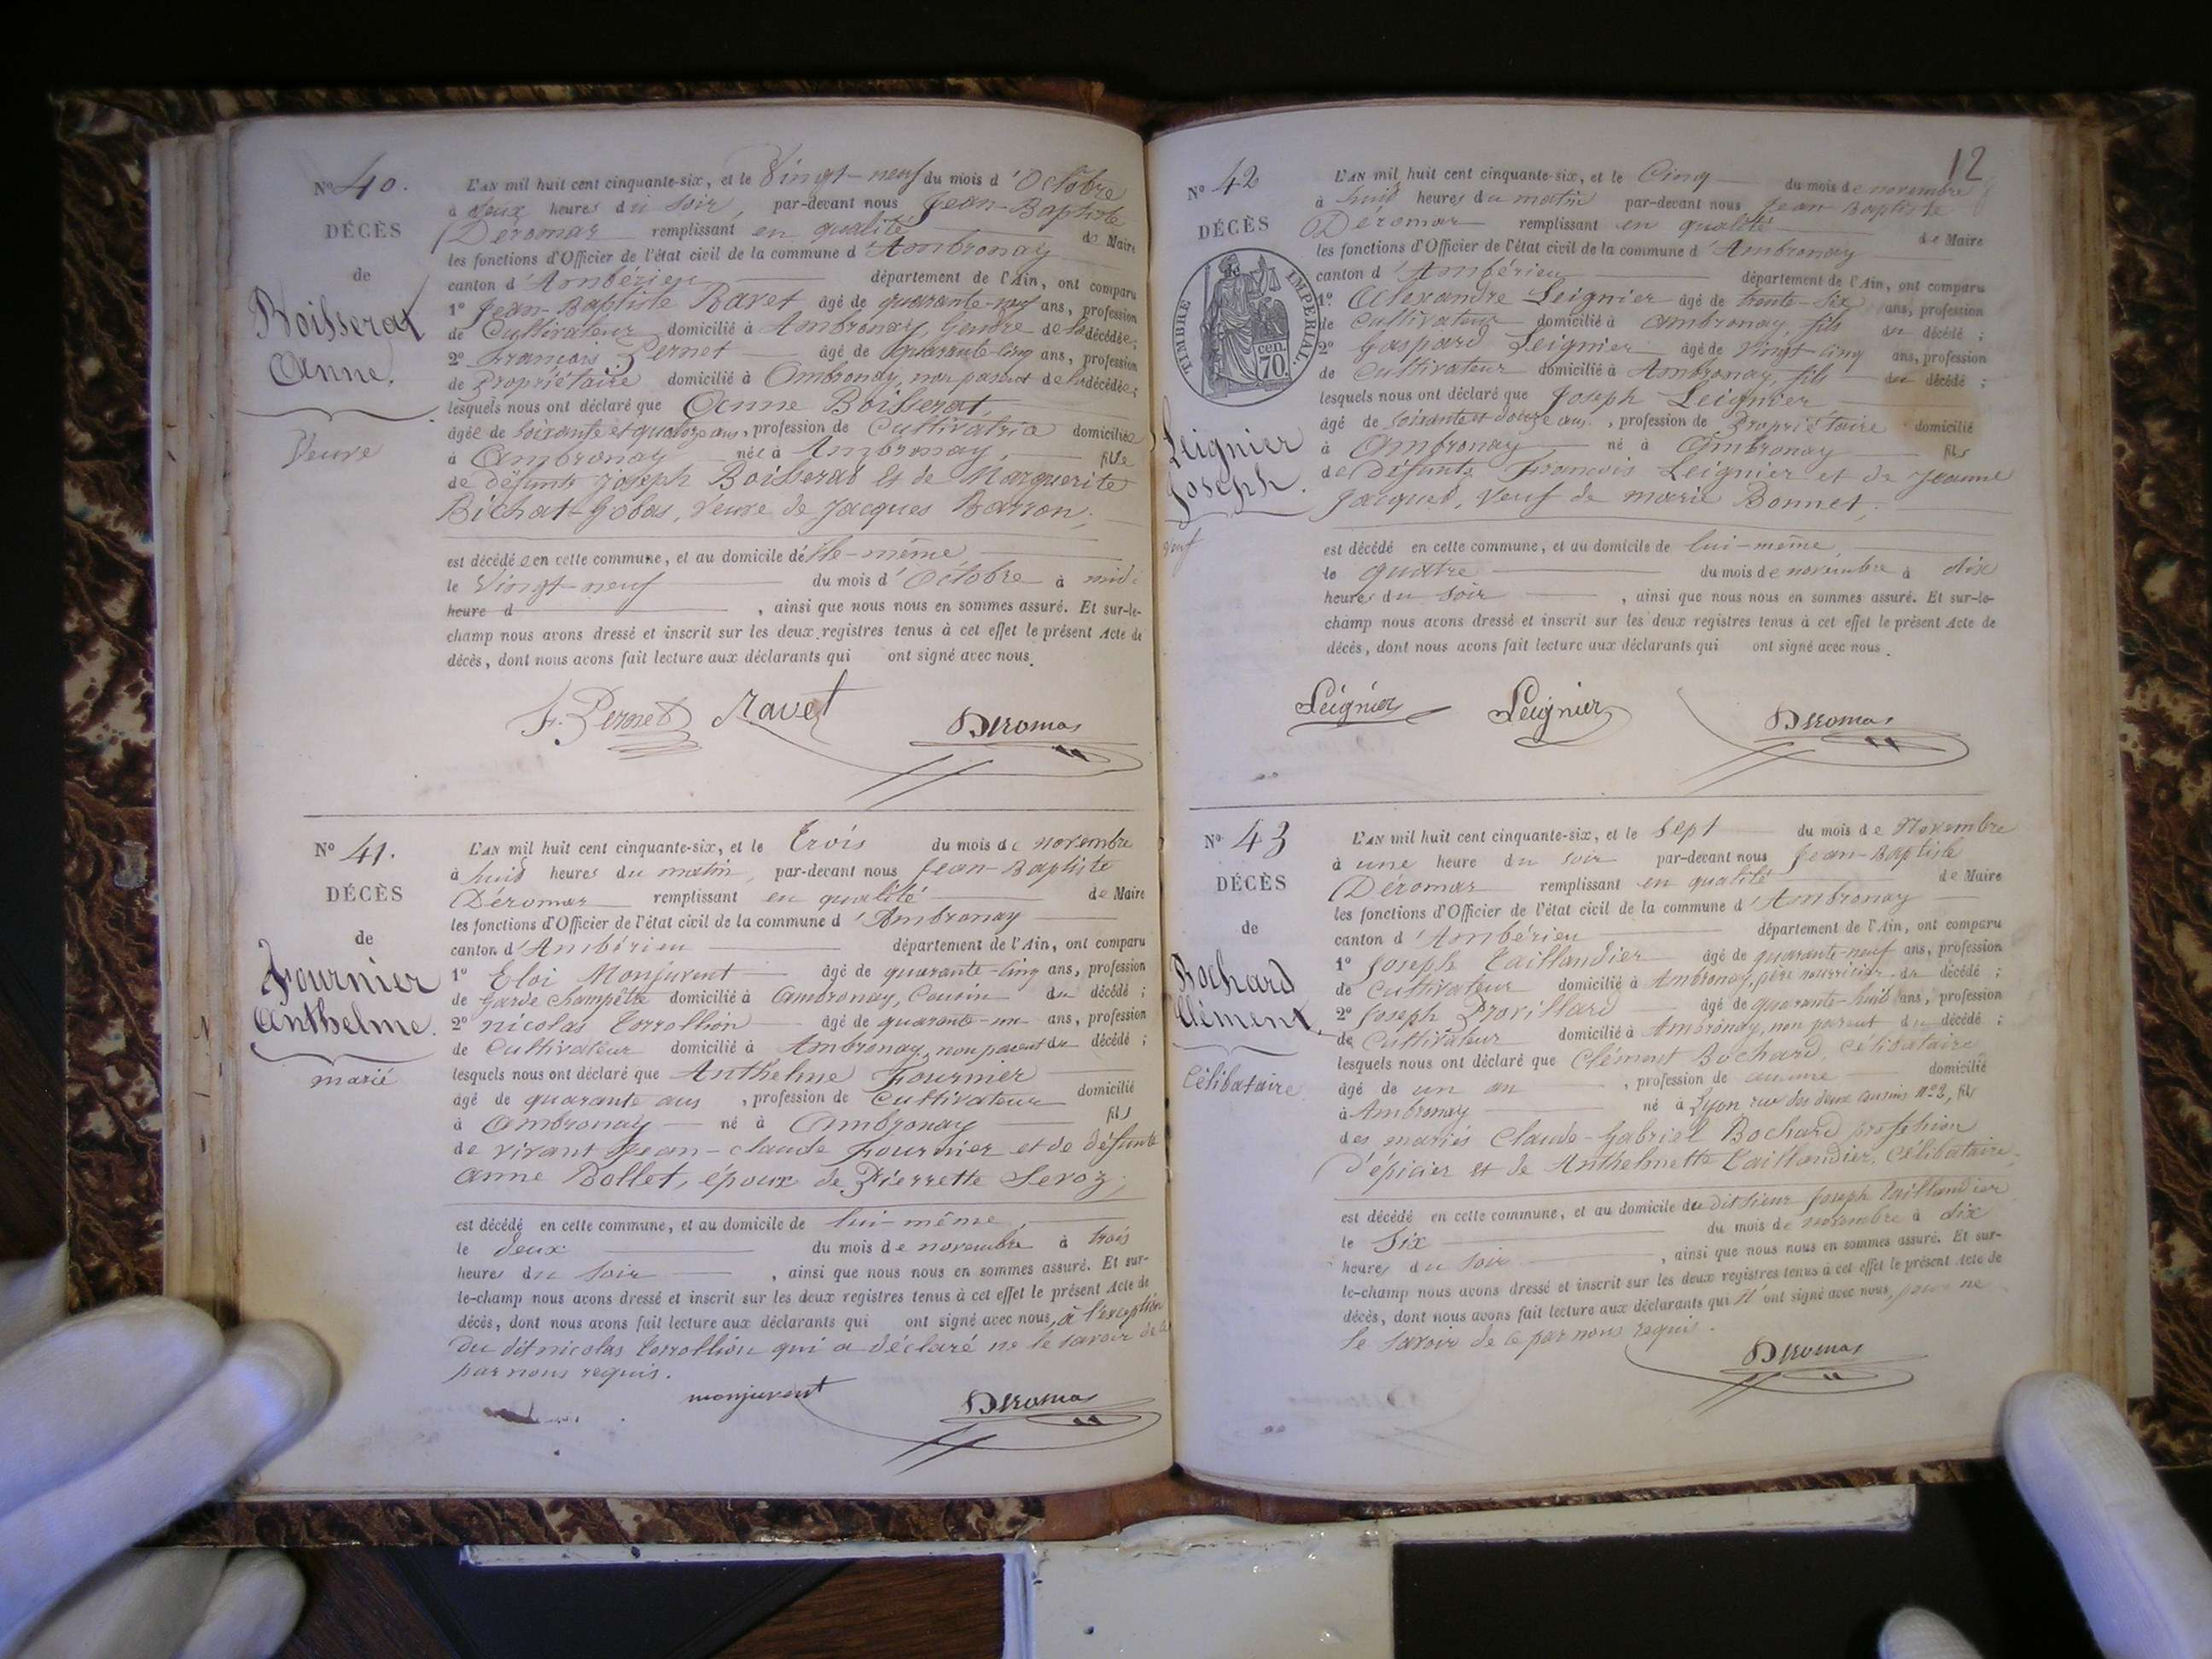 N° 40.
DÉCÈS
de
Boisserat
Anne.
Veuve
L'AN mil huit cent cinquante-six, et le Vingt-neuf du mois d'Octobre
à deux heures du soir, par-devant nous Jean-Baptiste
Déromas remplissant en qualité de Maire
les fonctions d'Officier de l'état civil de la commune d'Ambronay
canton d'Ambérieu département de l'Ain, ont comparu
1° Jean-Baptiste Ravet âgé de quarante-neuf ans, profession
de Cultivateur domicilié à Ambronay, Gendre de la décédée;
2° François Pernet âgé de quarante-cinq ans, profession
de Propriétaire domicilié à Ambronay, non parent de la décédée;
lesquels nous ont déclaré que Anne Boisserat,
âgée de soixante et quatorze ans, profession de Cultivatrice domiciliée
à Ambronay née à Ambronay, fille
de défunts Joseph Boisserat et de Marguerite
Bichat-Gobas, Veuve de Jacques Barron;
est décédée en cette commune, et au domicile d'elle-même
le Vingt-neuf du mois d'Octobre à midi
heure d , ainsi que nous nous en sommes assuré. Et sur-le-
champ nous avons dressé et inscrit sur les deux registres tenus à cet effet le présent Acte de
décès, dont nous avons fait lecture aux déclarants qui ont signé avec nous.
F. Pernet Ravet Deromas
N° 41.
DÉCÈS
de
Fournier
Anthelme.
marié
L'AN mil huit cent cinquante-six, et le trois du mois de novembre
à huit heures du matin, par-devant nous Jean-Baptiste
Déromas remplissant en qualité de Maire
les fonctions d'Officier de l'état civil de la commune d'Ambronay
canton d'Ambérieu département de l'Ain, ont comparu
1° Eloi Monjuvent âgé de quarante-cinq ans, profession
de Garde champêtre domicilié à Ambronay, Cousin du décédé;
2° nicolas Corrollion âgé de quarante-un ans, profession
de Cultivateur domicilié à Ambronay, non parent du décédé;
lesquels nous ont déclaré que Anthelme Fournier
âgé de quarante ans, profession de Cultivateur domicilié
à Ambronay né à Ambronay fils
de vivant Jean-claude Fournier et de défunte
Anne Bollet, époux de Pierrette Levoz;
est décédé en cette commune, et au domicile de lui-même,
le deux du mois de novembre à trois
heures du soir , ainsi que nous nous en sommes assuré. Et sur-
le-champ nous avons dressé et inscrit sur les deux registres tenus à cet effet le présent Acte de
décès, dont nous avons fait lecture aux déclarants qui ont signé avec nous, à l'exception
du dit nicolas Corrollion qui a déclaré ne le savoir de ce
par nous requis.
monjuvent Deromas
12
N° 42
DÉCÈS
TIMBRE IMPÉRIAL.
70 cen.
Leignier
Joseph.
veuf
L'AN mil huit cent cinquante-six, et le Cinq du mois de novembre
à huit heures du matin par-devant nous Jean-Baptiste
Déromas remplissant en qualité de Maire
les fonctions d'Officier de l'état civil de la commune d'Ambronay
canton d'Ambérieu département de l'Ain, ont comparu
1° Alexandre Leignier âgé de trente-six ans, profession
de Cultivateur domicilié à Ambronay, fils du décédé;
2° Gaspard Leignier âgé de Vingt-cinq ans, profession
de Cultivateur domicilié à Ambronay, fils du décédé;
lesquels nous ont déclaré que Joseph Leignier
âgé de soixante et douze ans, profession de Propriétaire domicilié
à Ambronay né à Ambronay fils
de défunts François Leignier et de Jeanne
Jacquet, Veuf de marie Bonnet,
est décédé en cette commune, et au domicile de lui-même,
le quatre du mois de novembre à dix
heures du soir , ainsi que nous nous en sommes assuré. Et sur-le-
champ nous avons dressé et inscrit sur les deux registres tenus à cet effet le présent Acte de
décès, dont nous avons fait lecture aux déclarants qui ont signé avec nous.
Leignier Leignier Deromas
N° 43
DÉCÈS
de
Bochard
Clément.
Célibataire
L'AN mil huit cent cinquante-six, et le Sept du mois de Novembre
à une heure du soir par-devant nous Jean-Baptiste
Déromas remplissant en qualité de Maire
les fonctions d'Officier de l'état civil de la commune d'Ambronay
canton d'Ambérieu département de l'Ain, ont comparu
1° Joseph Taillandier âgé de quarante-neuf ans, profession
de Cultivateur domicilié à Ambronay, père nourricier du décédé;
2° Joseph Provillard âgé de quarante-huit ans, profession
de Cultivateur domicilié à Ambronay, non parent du décédé;
lesquels nous ont déclaré que Clément Bochard, Célibataire
âgé de un an , profession de aucune domicilié
à Ambronay né à Lyon rue des deux cousins n° 2, fils
des mariés Claude-Gabriel Bochard profession
d'épicier et de Anthelmette Taillandier, Célibataire,
est décédé en cette commune, et au domicile du dit sieur Joseph Taillandier
le Six du mois de novembre à dix
heures du soir , ainsi que nous nous en sommes assuré. Et sur-
le-champ nous avons dressé et inscrit sur les deux registres tenus à cet effet le présent Acte de
décès, dont nous avons fait lecture aux déclarants qui n'ont signé avec nous, pour ne
le savoir de ce par nous requis.
Deromas